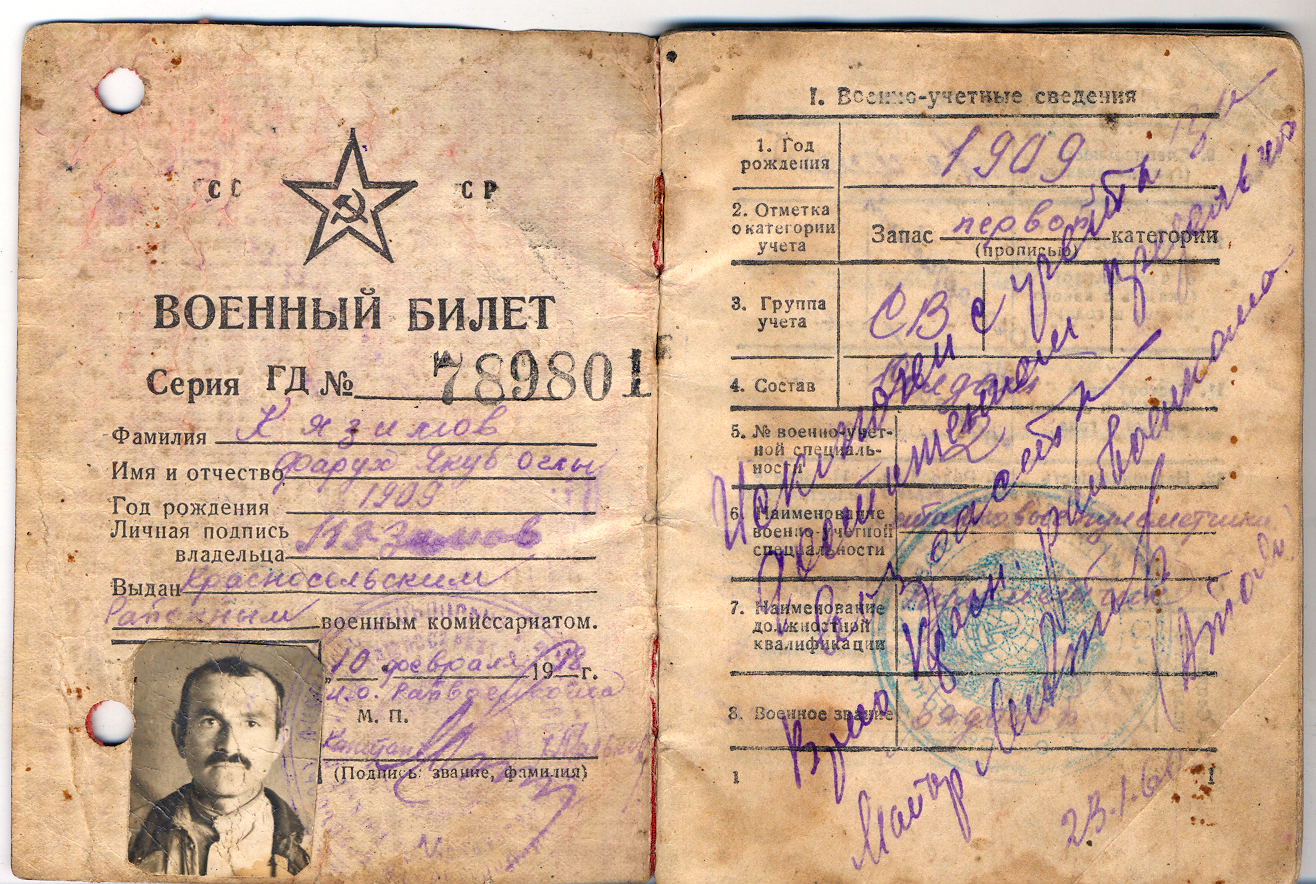 СС СР
ВОЕННЫЙ БИЛЕТ
Серия ГД № 789801
Фамилия Кязимов
Имя и отчество Фарух Якуб Оглы
Год рождения 1909
Личная подпись
владельца Кязимов
Выдан Красносельским
Районным военным комиссариатом.
„10 февраля 1948 г.
И.О. Райвоенкома
М. П.
Капитан
(Подпись: звание, фамилия)
I. Военно-учетные сведения
1. Год
рождения
1909
2. Отметка
о категории
учета
Запас первой категории
(прописью)
3. Группа
учета
СВ
4. Состав
рядовой
5. № военно-учет-
ной специаль-
ности
2
6. Наименование
военно-учетной
специальности
7. Наименование
должностной
квалификации
8. Военное звание
рядовой
1 1
Исключен с учета за
достижением предельного
возраста
Врио Красн. райвоенкома
Майор
23.1.60